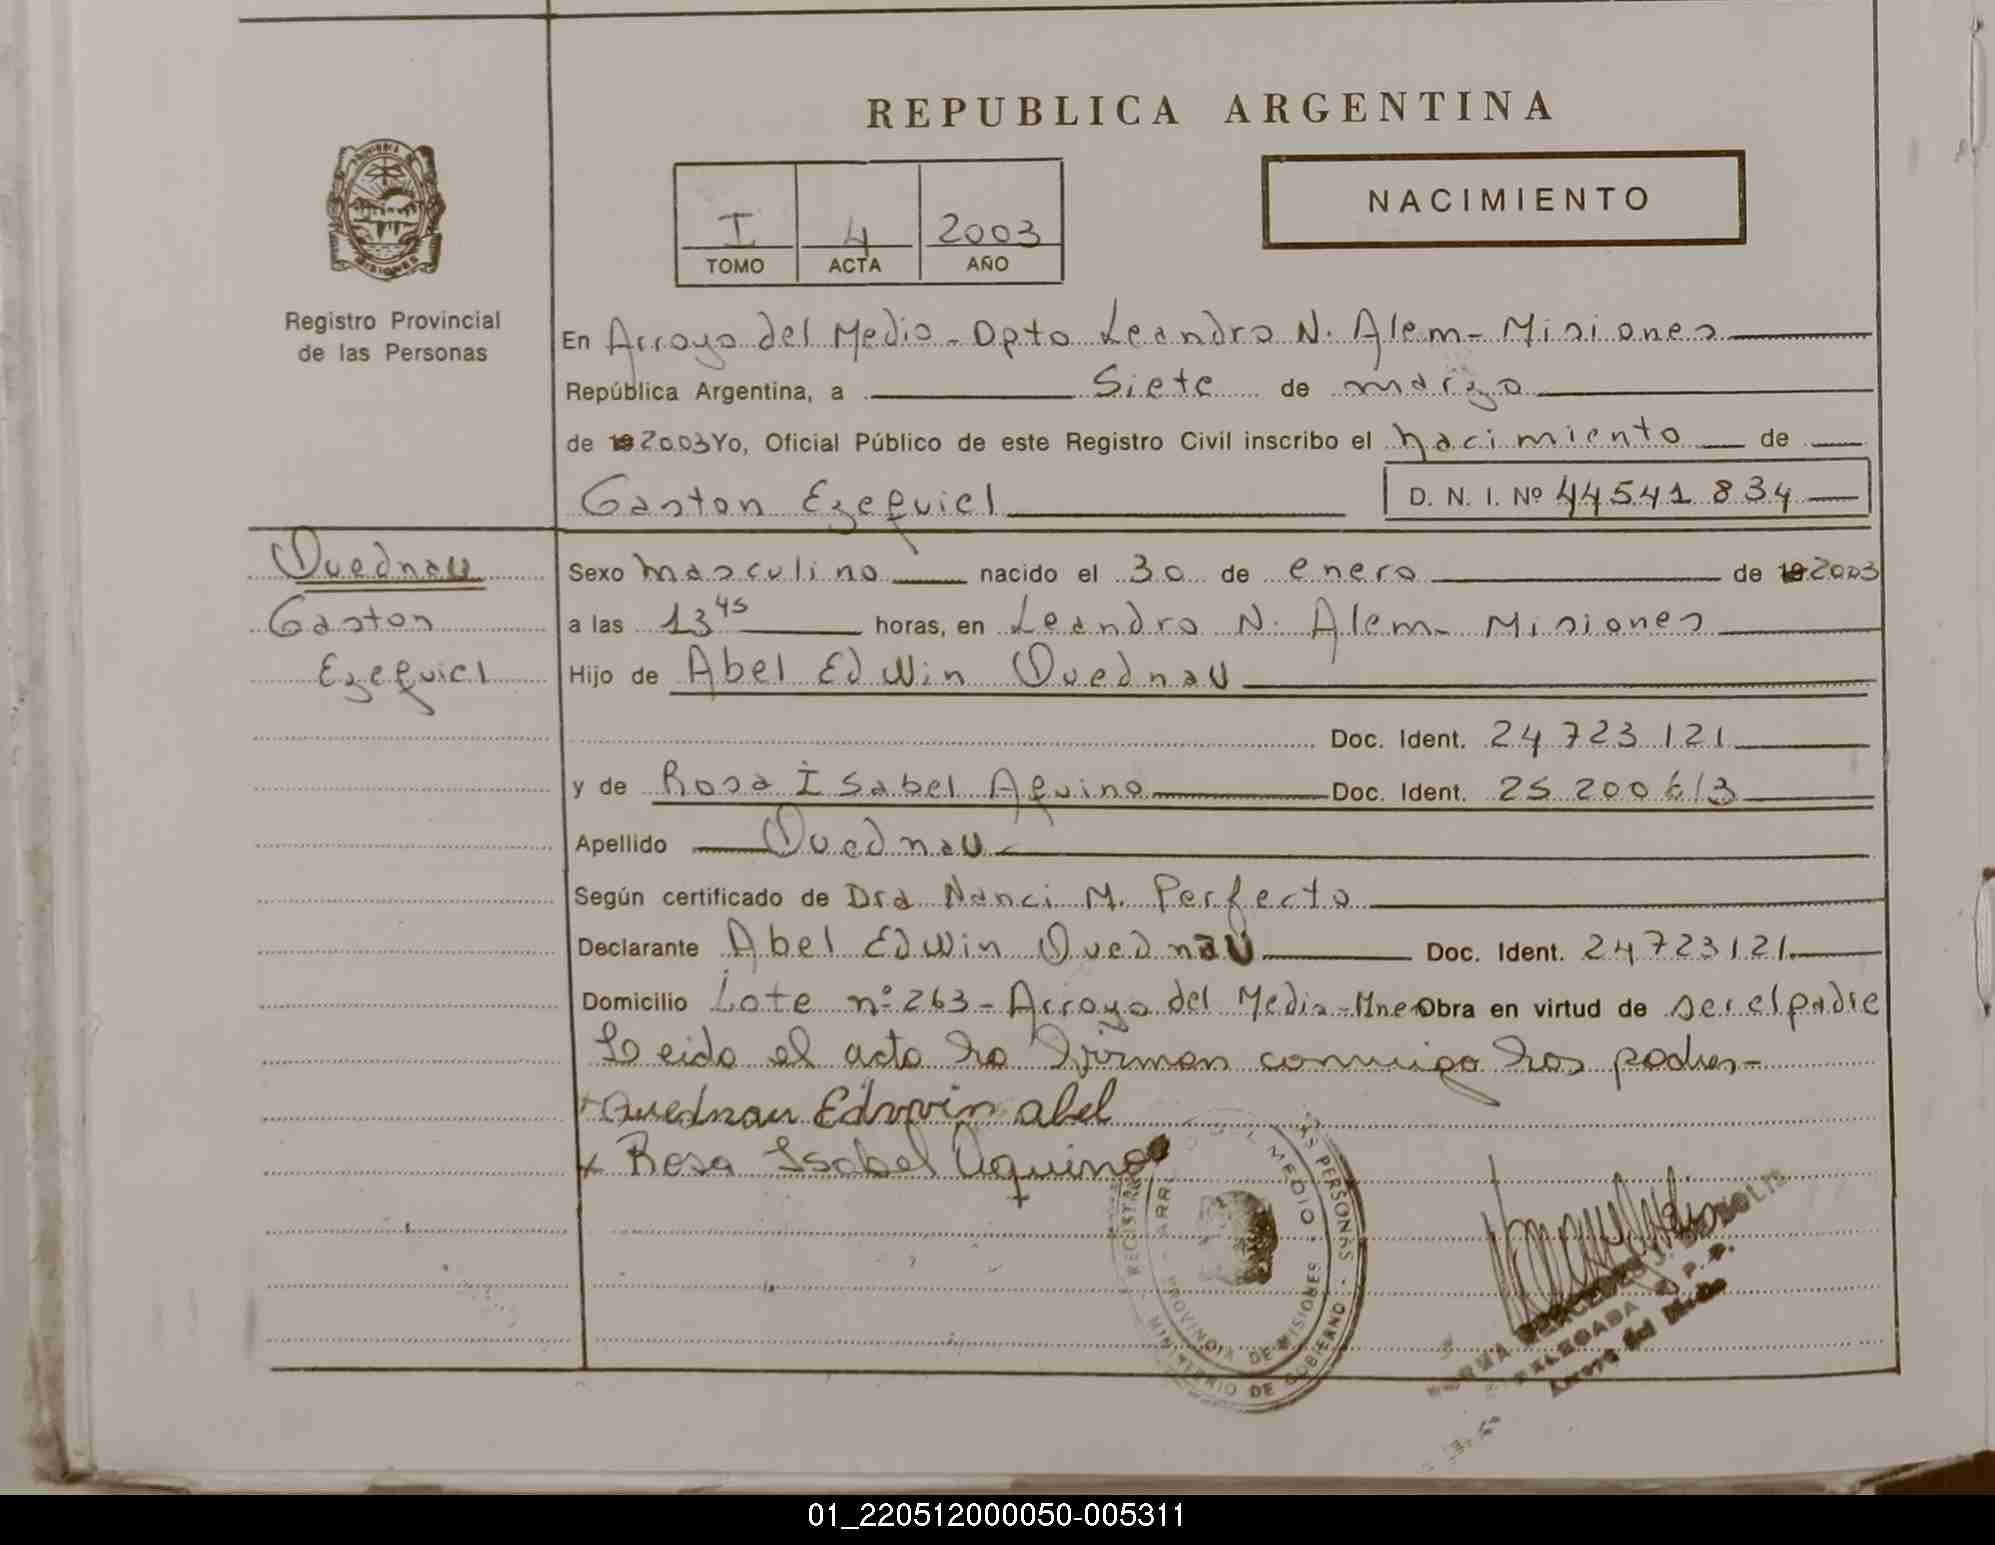 REPUBLICA ARGENTINA
NACIMIENTO
I 4 2003
TOMO ACTA AÑO
Registro Provincial
de las Personas
En Arroyo del Medio - Dpto Leandro N. Alem - Misiones
República Argentina, a Siete de marzo
de 19 2003 Yo, Oficial Público de este Registro Civil inscribo el nacimiento de
Gaston Ezequiel D. N. I. Nº 44541834
Quednau
Gaston
Ezequiel
Sexo masculino nacido el 30 de enero de 19 2003
a las 13 45 horas, en Leandro N. Alem - Misiones
Hijo de Abel Edwin Quednau
Doc. Ident. 24 723 121
y de Rosa Isabel Aquino Doc. Ident. 25 200 613
Apellido Quednau
Según certificado de Dra Nanci M. Perfecto
Declarante Abel Edwin Quednau Doc. Ident. 24723121
Domicilio Lote nº 263 - Arroyo del Medio - Mnes Obra en virtud de ser el padre
Leido el acta la firman conmigo los padres -
x Quednau Edwin abel
x Rosa Isabel Aquino
REGISTRO AS PERSONAS - MINISTERIO DE GOBIERNO
ARR L MEDIO - PROVINCIA DE MISIONES
DELEGADA R. P. P.
Arroyo del Medio
MISIONES
01_220512000050-005311